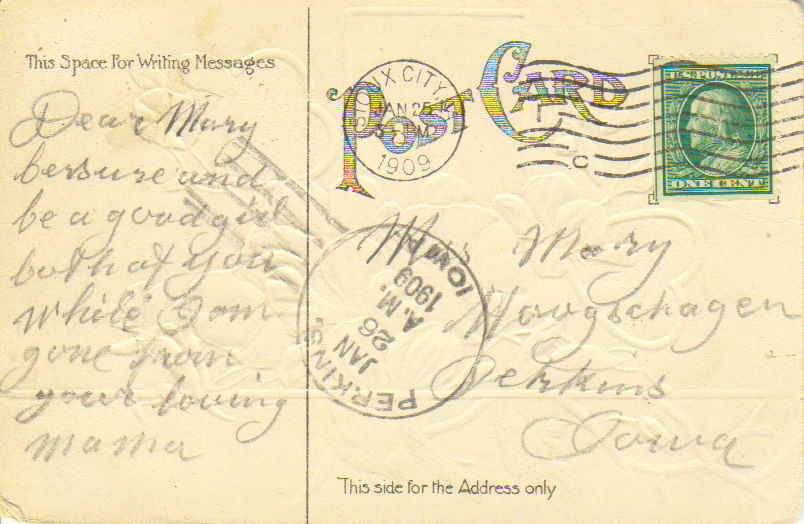 This Space For Writing Messages
POST CARD
SIOUX CITY
JAN 25
1909
C
U.S. POSTAGE
ONE CENT
Dear Mary
be sure and
be a good girl
both of you
while I am
gone from
your loving
mama
PERKINS
JAN
26
A.M.
1909
IOWA
Miss Mary
Perkins
Iowa
This side for the Address only